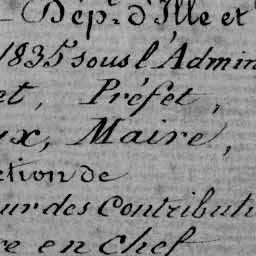 Dép.t d'Ille et
1835 sous l'Admin
et, Préfet,
ux, Maire,
ction de
eur des Contributi
re en Chef